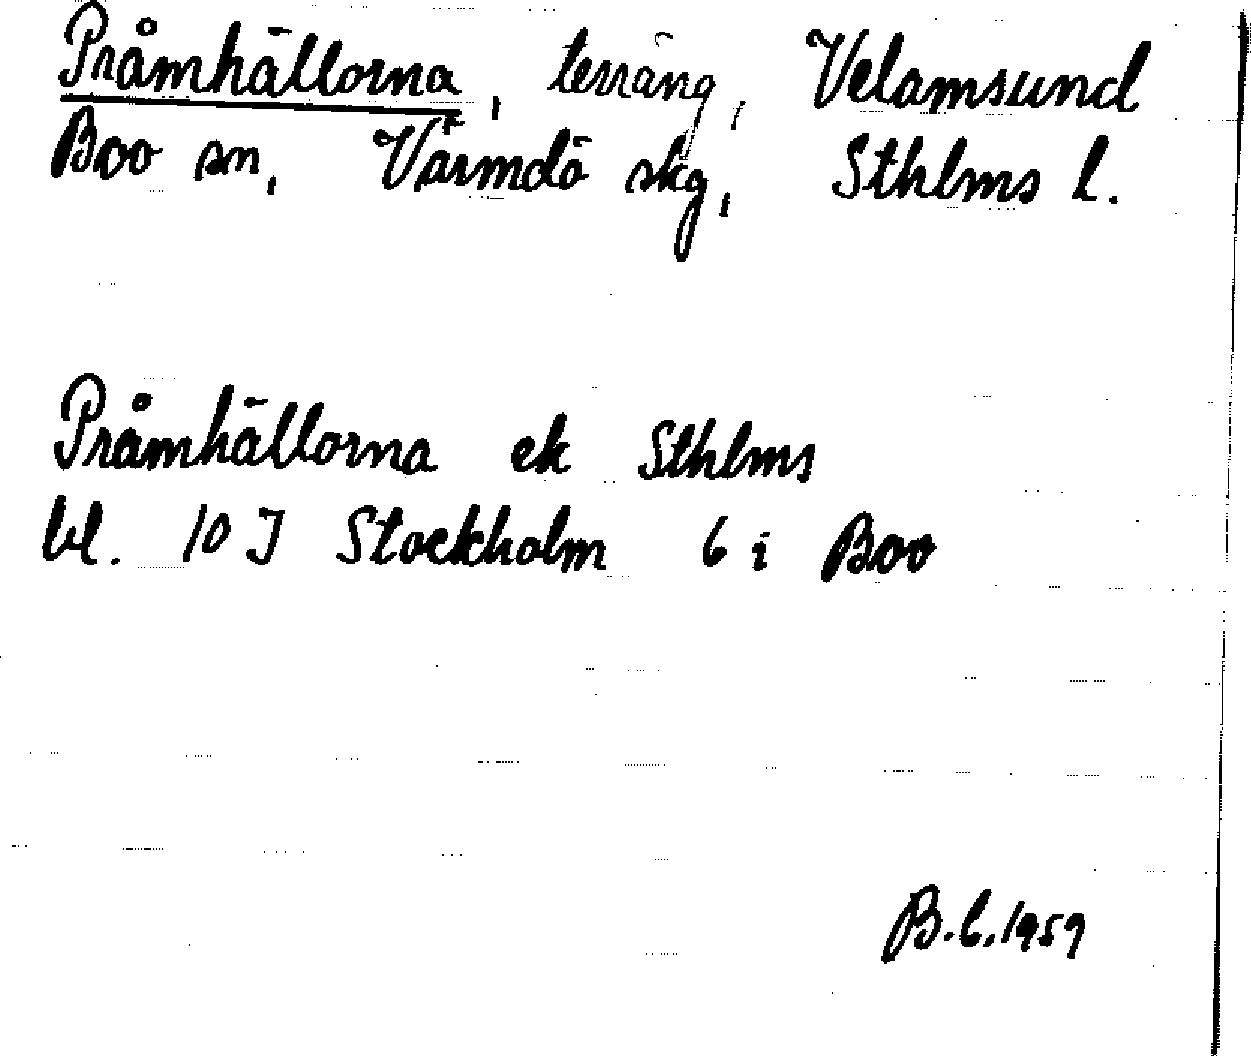 Pråmhällorna, terräng, Velamsund
Boo sn, Värmdö skg, Sthlms l.
Pråmhällorna ek Sthlms
bl. 10 I Stockholm 6 i Boo
B.C. 1959